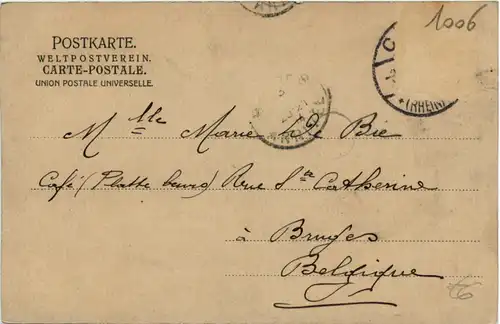 1006
POSTKARTE.
WELTPOSTVEREIN.
CARTE-POSTALE.
UNION POSTALE UNIVERSELLE.
(RHEIN)
Mlle Marie de Bie
Café (Platte beurs) Rue Ste Catherine
à Bruges
Belgique